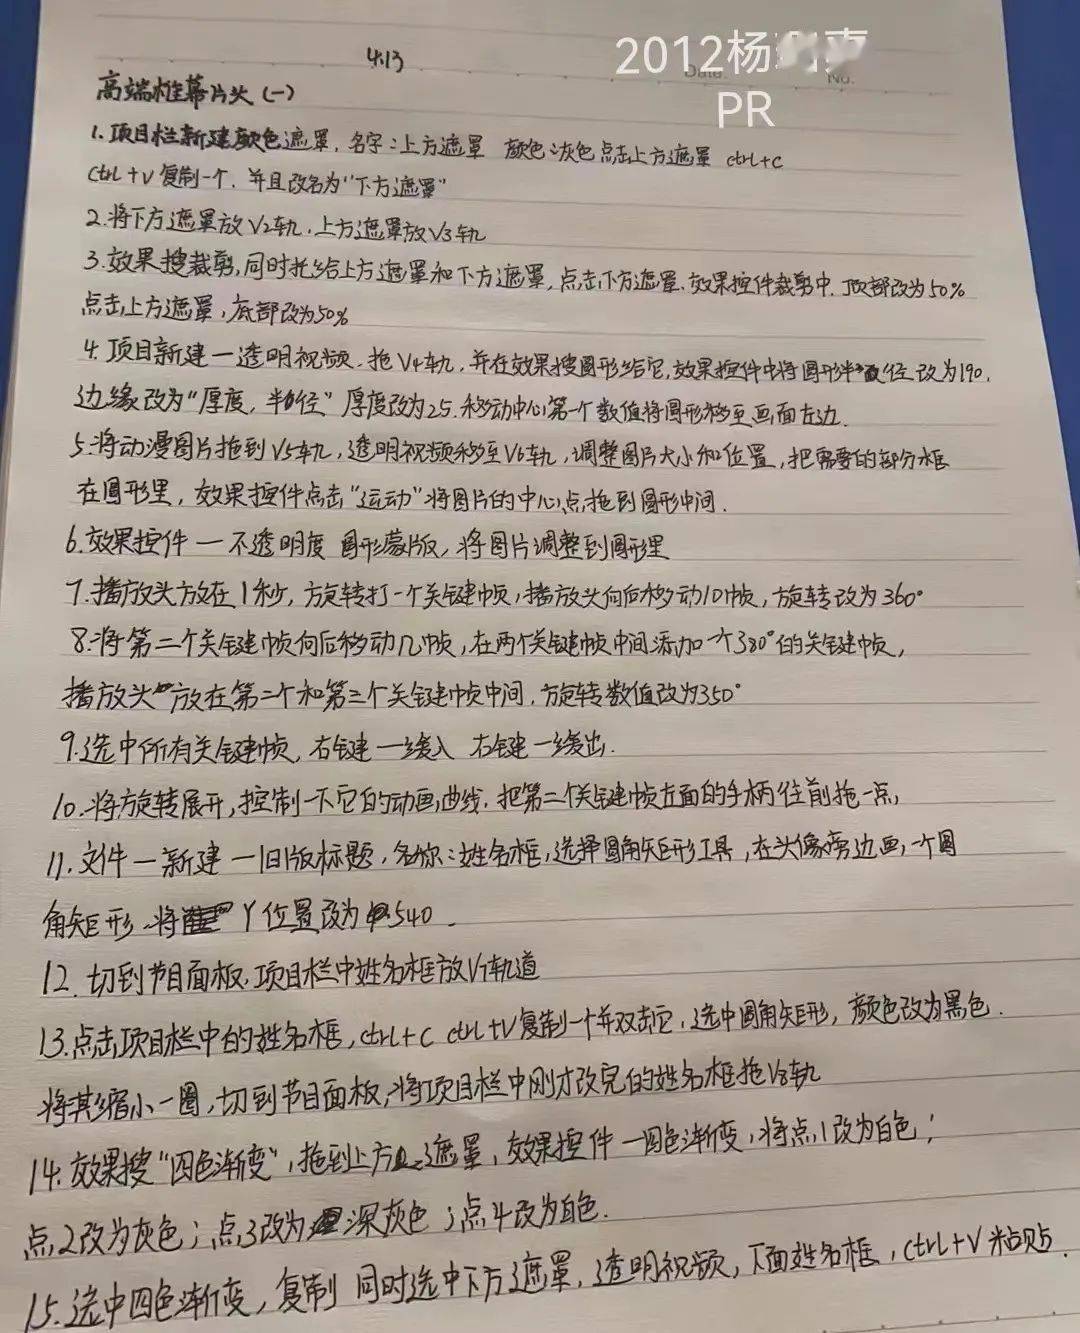 2012杨
PR
4.13
Date.
No.
高端推幕片头(一)
1.项目栏新建颜色遮罩,名字:上方遮罩 颜色:灰色 点击上方遮罩 ctrl+c
ctrl+v复制一个.并且改名为"下方遮罩"
2.将下方遮罩放V2轨.上方遮罩放V3轨
3.效果搜裁剪,同时托给上方遮罩和下方遮罩,点击下方遮罩.效果控件裁剪中.顶部改为50%
点击上方遮罩,底部改为50%
4.项目新建一透明视频.拖V4轨,并在效果搜圆形给它,效果控件中将圆形半径改为190.
边缘改为"厚度,半径"厚度改为25.移动中心第一个数值将圆形移至画面左边.
5.将动漫图片拖到V5轨,透明视频移至V6轨,调整图片大小和位置,把需要的部分框
在圆形里,效果控件点击"运动"将图片的中心点拖到圆形中间.
6.效果控件一不透明度 圆形蒙版,将图片调整到圆形里
7.播放头方放在1秒,旋转打一个关键帧,播放头向后移动10帧,旋转改为360°
8.将第二个关键帧向后移动几帧,在两个关键帧中间添加一个380°的关键帧,
播放头放在第二个和第三个关键帧中间.旋转数值改为350°
9.选中所有关键帧,右键一缓入 右键一缓出.
10.将旋转展开,控制一下它的动画曲线.把第二个关键帧左面的手柄往前拖一点,
11.文件一新建一旧版标题,名称:姓名框,选择圆角矩形工具,在头像旁边画一个圆
角矩形.将Y位置改为540.
12.切到节目面板.项目栏中姓名框放V7轨道
13.点击项目栏中的姓名框,ctrl+c ctrl+v复制一个并双击它.选中圆角矩形,颜色改为黑色.
将其缩小一圈,切到节目面板,将项目栏中刚才改完的姓名框拖V8轨
14.效果搜"四色渐变",拖到上方遮罩,效果控件一四色渐变,将点1改为白色;
点2改为灰色;点3改为深灰色;点4改为白色.
15.选中四色渐变,复制 同时选中下方遮罩,透明视频,下面姓名框,ctrl+v粘贴.